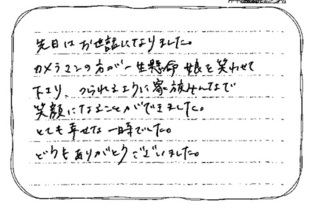 先日はお世話になりました。
カメラマンの方が一生懸命 娘を笑わせて
下さり、つられるように家族みんなで
笑顔になることができました。
とても幸せな一時でした。
どうもありがとうございました。